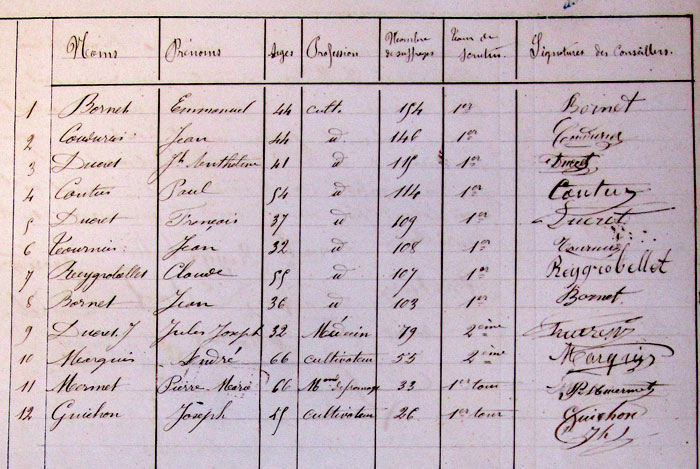 Noms Prénoms Ages Profession Nombre de suffrages Tour de scrutin Signatures des Conseillers.
1 Bornet Emmanuel 44 cult. 154 1er Bornet
2 Jean 44 id 146 1er
3 Ducret 41 id 115 1er Ducret
4 Coutur Paul 54 id 114 1er Coutuz
5 Ducret François 37 id 109 1er Ducret
6 Tournier Jean 32 id 108 1er Tournier
7 Reygrobellet Claude 55 id 107 1er Reygrobellet
8 Bornet Jean 36 id 103 1er Bornet
9 Ducret J Jules Joseph 32 Médecin 79 2ème
10 Marquis André 66 cultivateur 55 2ème Marquis
11 Mermet Pierre Marie 66 Md de fromage 33 1er tour
12 Guichon Joseph cultivateur 26 1er tour Guichon
Jh